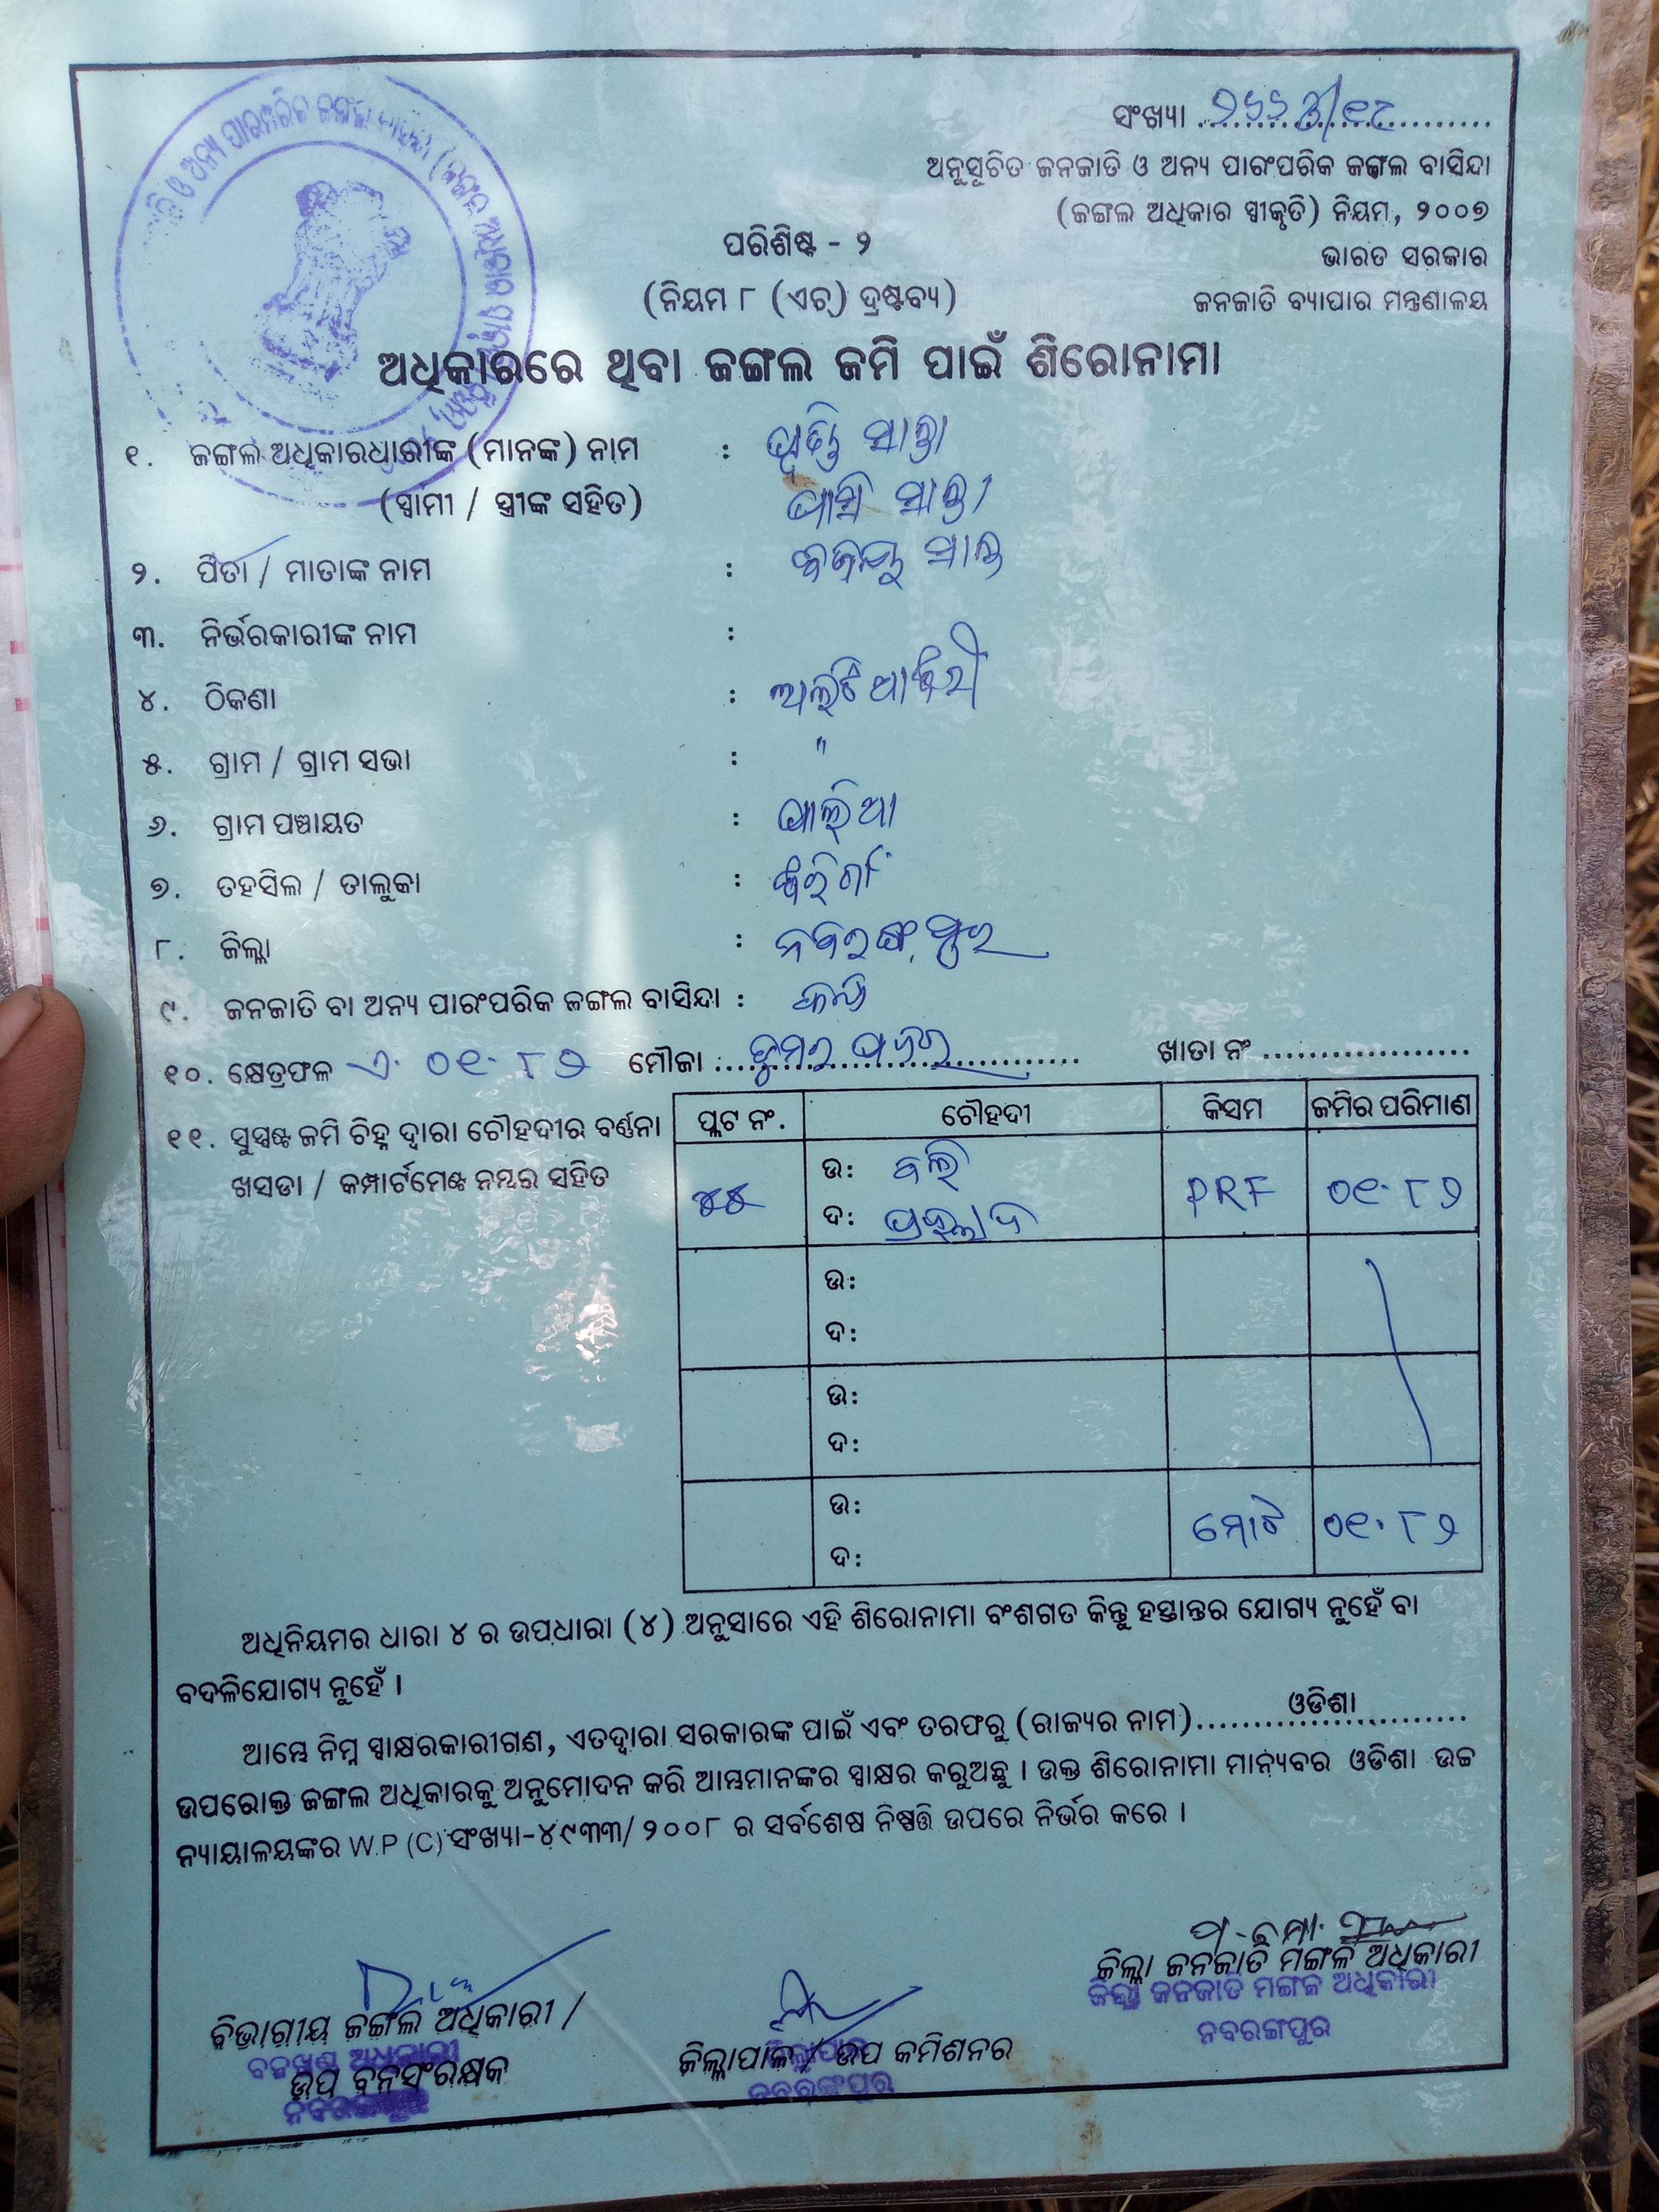 ସଂଖ୍ୟା
ଅନୁସୂଚିତ ଜନଜାତି ଓ ଅନ୍ୟ ପାରଂପରିକ ଜଙ୍ଗଲ ବାସିନ୍ଦା
(ଜଙ୍ଗଲ ଅଧିକାର ସ୍ୱୀକୃତି) ନିୟମ, ୨୦୦୭
ପରିଶିଷ୍ଟ - ୨
ଭାରତ ସରକାର
(ନିୟମ ୮ (ଏଚ୍) ଦ୍ରଷ୍ଟବ୍ୟ)
ଜନଜାତି ବ୍ୟାପାର ମନ୍ତ୍ରଣାଳୟ
ଅଧିକାରରେ ଥିବା ଜଙ୍ଗଲ ଜମି ପାଇଁ ଶିରୋନାମା
୧. ଜଙ୍ଗଲ ଅଧିକାରଧାରୀଙ୍କ (ମାନଙ୍କ) ନାମ :
(ସ୍ୱାମୀ / ସ୍ତ୍ରୀଙ୍କ ସହିତ)
୨. ପିତା / ମାତାଙ୍କ ନାମ :
୩. ନିର୍ଭରକାରୀଙ୍କ ନାମ :
୪. ଠିକଣା :
୫. ଗ୍ରାମ / ଗ୍ରାମ ସଭା : "
୬. ଗ୍ରାମ ପଞ୍ଚାୟତ :
୭. ତହସିଲ / ତାଲୁକା :
୮. ଜିଲ୍ଲା : ନବରଙ୍ଗପୁର
୯. ଜନଜାତି ବା ଅନ୍ୟ ପାରଂପରିକ ଜଙ୍ଗଲ ବାସିନ୍ଦା :
୧୦. କ୍ଷେତ୍ରଫଳ ଏ. ୦୧.୮୨ ମୌଜା : ଖାତା ନଂ
୧୧. ସୁସ୍ପଷ୍ଟ ଜମି ଚିହ୍ନ ଦ୍ୱାରା ଚୌହଦୀର ବର୍ଣ୍ଣନା
ଖସଡା / କମ୍ପାର୍ଟମେଣ୍ଟ ନମ୍ବର ସହିତ
ପ୍ଲଟ ନଂ. ଚୌହଦୀ କିସମ ଜମିର ପରିମାଣ
ଉ: ବଲି PRF ୦୧.୮୨
ଦ: ପ୍ରହଲାଦ
ଉ:
ଦ:
ଉ:
ଦ:
ଉ: ମୋଟ ୦୧.୮୨
ଦ:
ଅଧିନିୟମର ଧାରା ୪ ର ଉପଧାରା (୪) ଅନୁସାରେ ଏହି ଶିରୋନାମା ବଂଶଗତ କିନ୍ତୁ ହସ୍ତାନ୍ତର ଯୋଗ୍ୟ ନୁହେଁ ବା
ବଦଳିଯୋଗ୍ୟ ନୁହେଁ ।
ଆମ୍ଭେ ନିମ୍ନ ସ୍ୱାକ୍ଷରକାରୀଗଣ, ଏତଦ୍ୱାରା ସରକାରଙ୍କ ପାଇଁ ଏବଂ ତରଫରୁ (ରାଜ୍ୟର ନାମ) ଓଡିଶା
ଉପରୋକ୍ତ ଜଙ୍ଗଲ ଅଧିକାରକୁ ଅନୁମୋଦନ କରି ଆମ୍ଭମାନଙ୍କର ସ୍ୱାକ୍ଷର କରୁଅଛୁ । ଉକ୍ତ ଶିରୋନାମା ମାନ୍ୟବର ଓଡିଶା ଉଚ୍ଚ
ନ୍ୟାୟାଳୟଙ୍କର W.P (C) ସଂଖ୍ୟା-୪୯୩୩/୨୦୦୮ ର ସର୍ବଶେଷ ନିଷ୍ପତ୍ତି ଉପରେ ନିର୍ଭର କରେ ।
ଜିଲ୍ଲା ଜନଜାତି ମଙ୍ଗଳ ଅଧିକାରୀ
ଜିଲ୍ଲା ଜନଜାତି ମଙ୍ଗଳ ଅଧିକାରୀ
ନବରଙ୍ଗପୁର
ବିଭାଗୀୟ ଜଙ୍ଗଲ ଅଧିକାରୀ /
ଉପ ବନସଂରକ୍ଷକ
ଜିଲ୍ଲାପାଳ / ଉପ କମିଶନର
ନବରଙ୍ଗପୁର